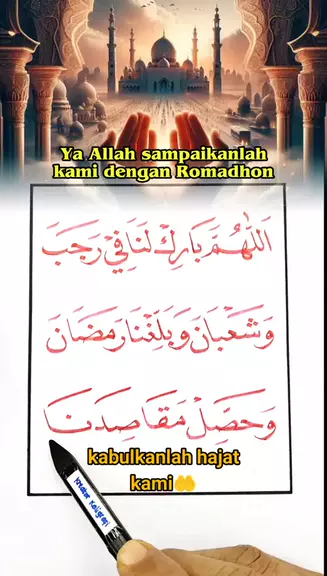 Ya Allah sampaikanlah
kami dengan Romadhon
اَللّٰهُمَّ بَارِكْ لَنَا فِيْ رَجَبَ
وَشَعْبَانَ وَبَلِّغْنَا رَمَضَانَ
وَحَصِّلْ مَقَاصِدَنَا
kabulkanlah hajat
kami🤲